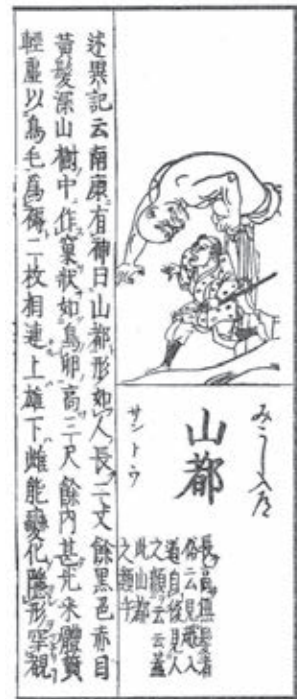 みこし入道
山都
サントウ
長高無髪者
俗云見越入
道自後見人
之顔云云蓋
此山都
之類乎
述異記云南康有神曰山都形如人長二丈餘黒色赤目
黄髪深山樹中作窠状如鳥卵高三尺餘内甚光采體質
輕虚以鳥毛爲褥二枚相連上雄下雌能變化隱形罕覩